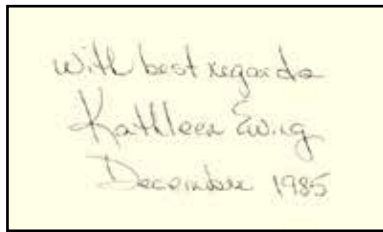 With best regards
Kathleen Ewing
December 1985